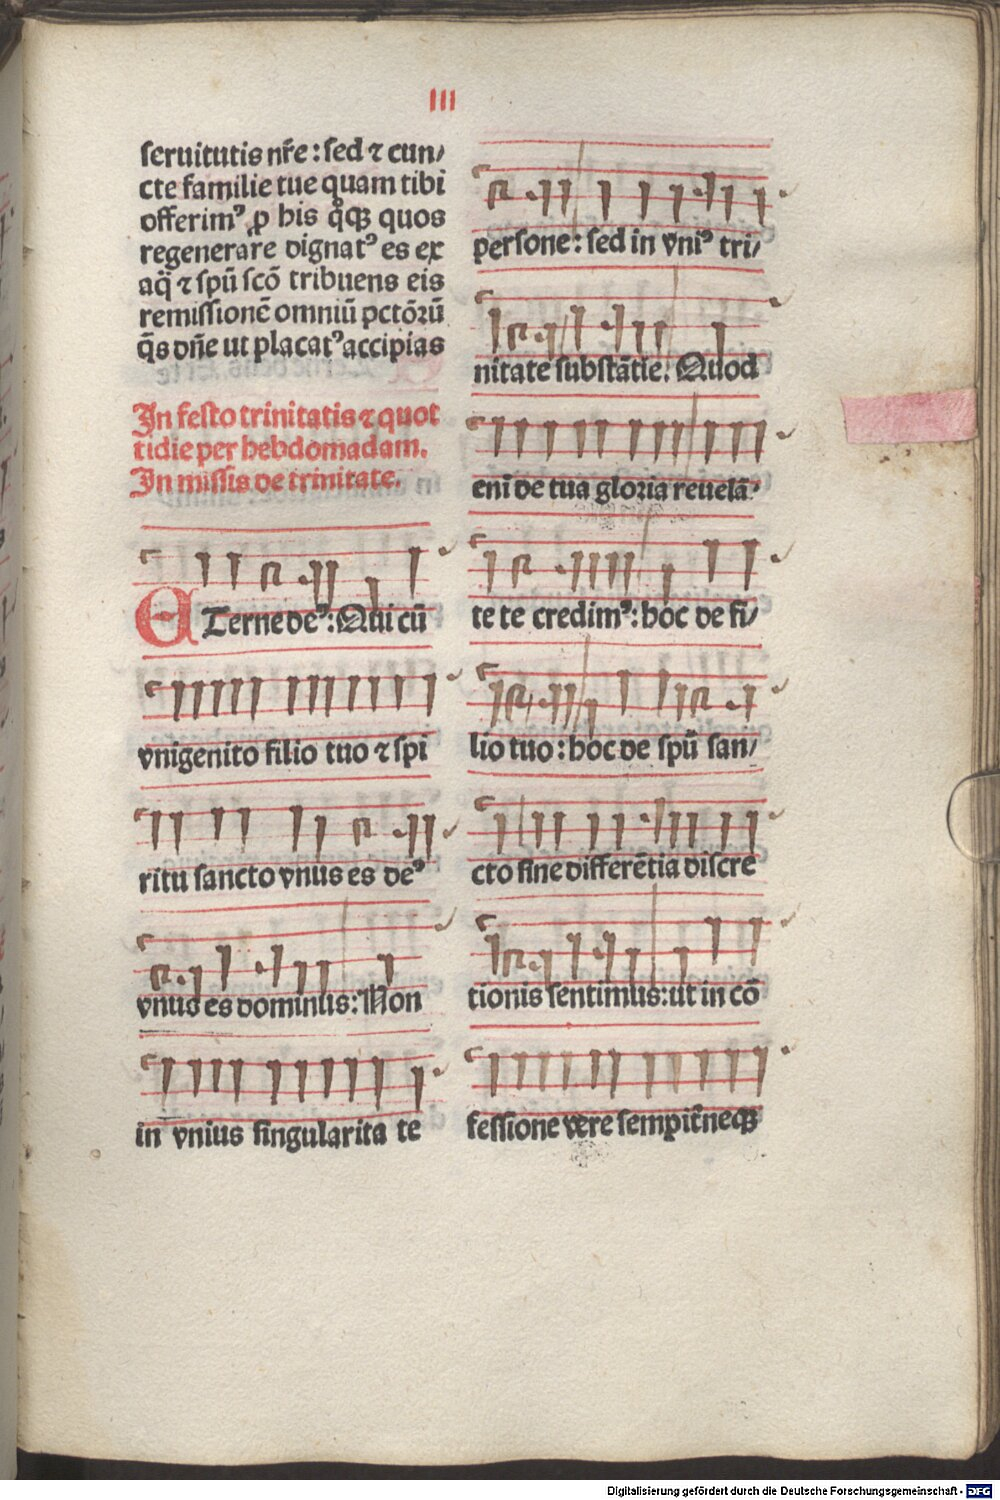 III
seruitutis nr̃e: sed ⁊ cun/
cte familie tue quam tibi
offerimꝰ ꝓ his q̃qꝫ quos
regenerare dignatꝰ es ex
aq̃ ⁊ spũ scõ tribuens eis
remissionẽ omniũ pctõꝛũ
q̃s dñe ut placatꝰ accipias
In festo trinitatis ⁊ quot
tidie per hebdomadam.
In missis de trinitate.
ETerne deꝰ: Qui cũ
vnigenito filio tuo ⁊ spi
ritu sancto vnus es deꝰ
vnus es dominus: Non
in vnius singularita te
persone: sed in vniꝰ tri/
nitate substãtie. Quod
eni̅ de tua gloꝛia reuelã/
te te credimꝰ: hoc de fi/
lio tuo: hoc de spũ san/
cto sine differẽtia discre
tionis sentimus: ut in cõ
fessione vere sempit̃neqꝫ
Digitalisierung gefördert durch die Deutsche Forschungsgemeinschaft - DFG